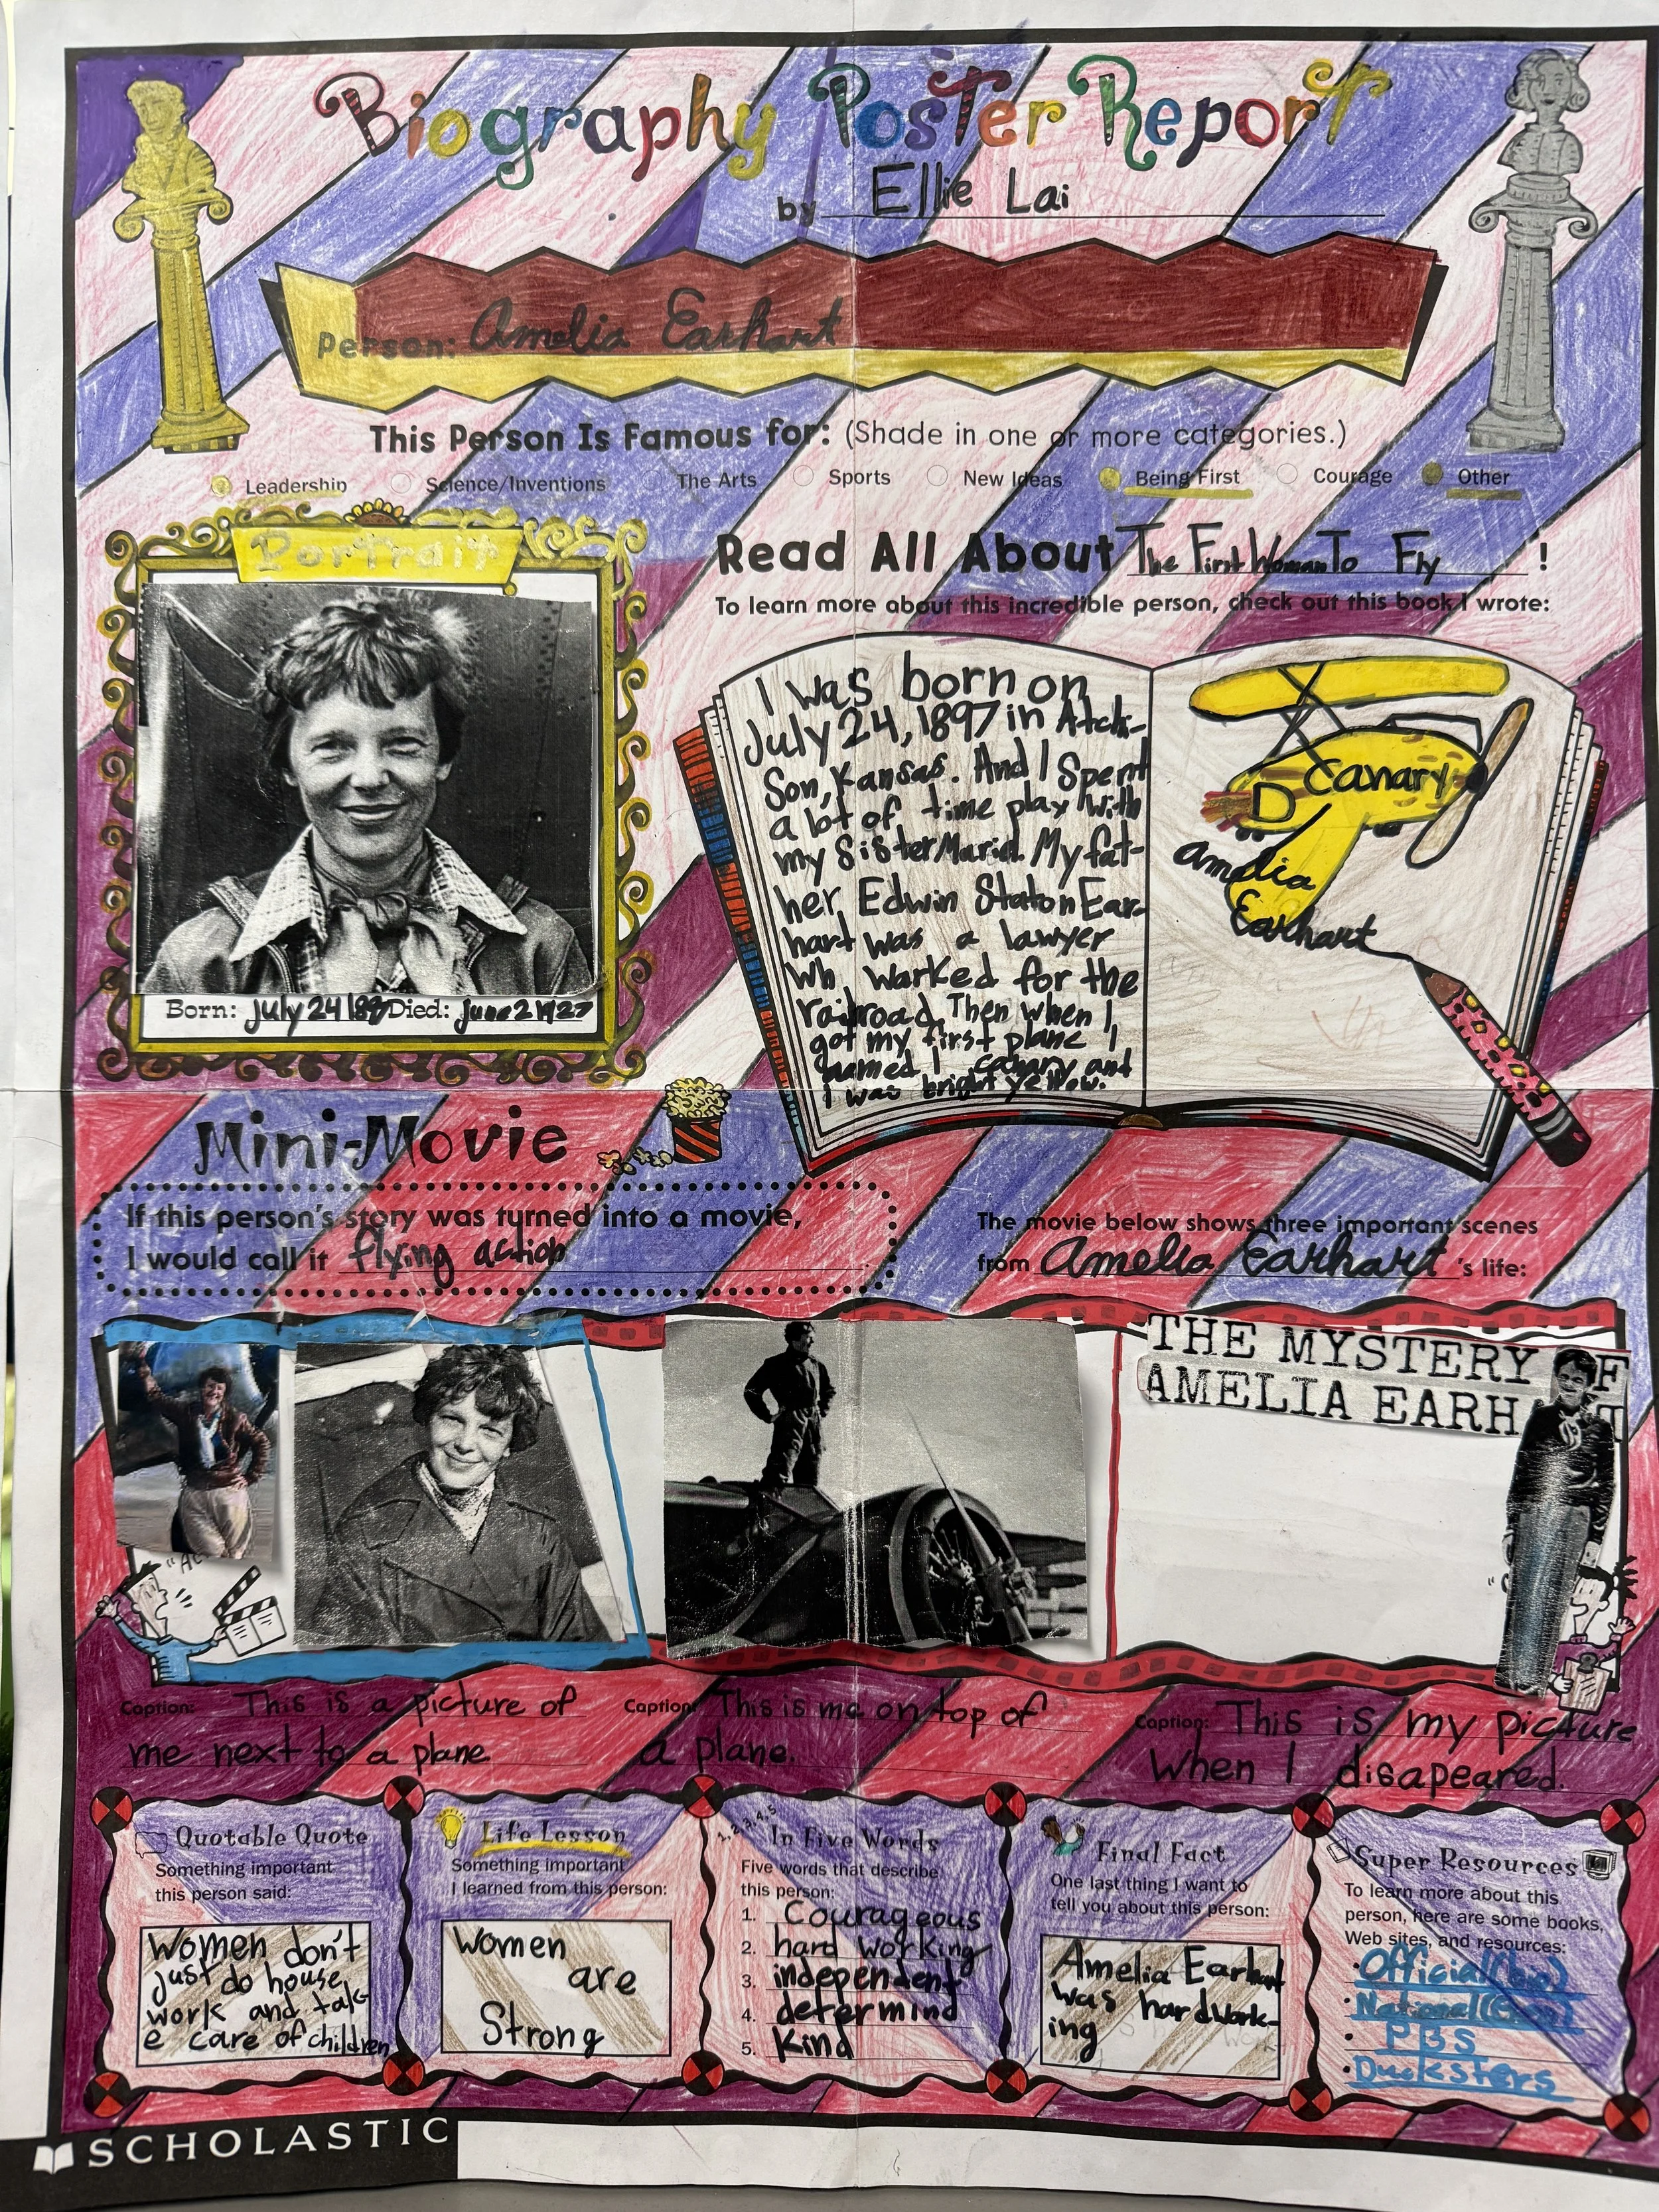 Biography Poster Report
by Ellie Lai
Person: Amelia Earhart
This Person Is Famous for: (Shade in one or more categories.)
Leadership Science/Inventions The Arts Sports New Ideas Being First Courage Other
Portrait
Born: July 24 189 Died: June 2 1927
Read All About The First Woman To Fly!
To learn more about this incredible person, check out this book I wrote:
I was born on
July 24, 1897 in Atchi-
Son, Kansas. And I Spent
a lot of time play with
my Sister Muriel. My fat-
her Edwin Staton Ear-
hart was a lawyer
wh warked for the
railroad. Then when I
got my first plane I
named I canary and
I was bright yellow.
Canary
D
Amelia
Earhart
Mini-Movie
If this person's story was turned into a movie,
I would call it flying action.
The movie below shows three important scenes
from Amelia Earhart's life:
THE MYSTERY OF
AMELIA EARH T
Caption: This is a picture of
me next to a plane.
Caption: This is me on top of
a plane.
Caption: This is my picture
when I disapeared.
Quotable Quote
Something important
this person said:
Women don't
just do house
work and tak-
e care of children
Life Lesson
Something important
I learned from this person:
Women
are
Strong
1, 2, 3, 4, 5
In Five Words
Five words that describe
this person:
1. Courageous
2. hard working
3. independent
4. determind
5. Kind
Final Fact
One last thing I want to
tell you about this person:
Amelia Earhart
was hardwork-
ing
Super Resources
To learn more about this
person, here are some books,
Web sites, and resources:
Official (bio)
National (Geo)
PBS
Ducksters
SCHOLASTIC